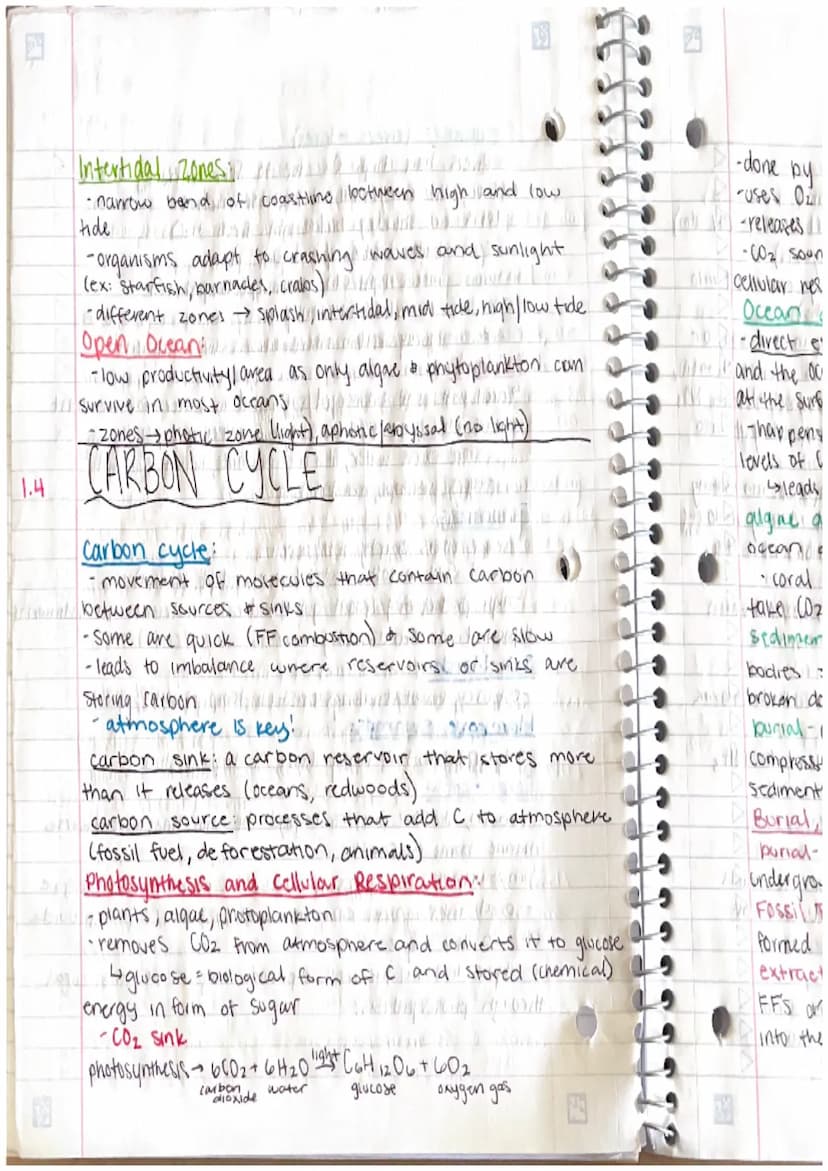 Intertidal Zones:
- narrow band of coastline between high and low
tide
- organisms adapt to crashing waves and sunlight
(ex: starfish, barnacles, crabs)
- different zones → splash, intertidal, mid tide, high/low tide
Open Ocean:
- low productivity/area as only algae & phytoplankton can
survive in most oceans
- zones → photic zone (light), aphotic/abyssal (no light)
1.4 CARBON CYCLE
Carbon cycle:
- movement of molecules that contain carbon
between sources & sinks
- some are quick (FF combustion) & some are slow
- leads to imbalance where reservoirs or sinks are
storing carbon
- atmosphere is key!
carbon sink: a carbon reservoir that stores more
than it releases (oceans, redwoods)
carbon source: processes that add C to atmosphere
(fossil fuel, deforestation, animals)
Photosynthesis and Cellular Respiration:
- plants, algae, protoplankton
- removes CO2 from atmosphere and converts it to glucose
↳ glucose = biological form of C and stored (chemical)
energy in form of sugar
- CO2 sink
photosynthesis → 6CO2 + 6H2O light→ C6H12O6 + 6O2
carbon dioxide water glucose oxygen gas
- done by
- uses O2
- releases
- CO2
cellular
Ocean
- direct
and the
at the
- happens
levels of
↳ leads
algae
ocean
- coral
take CO2
bodies
broken
burial -
sediment
Burial,
burial -
Fossil
formed
FFs
into the